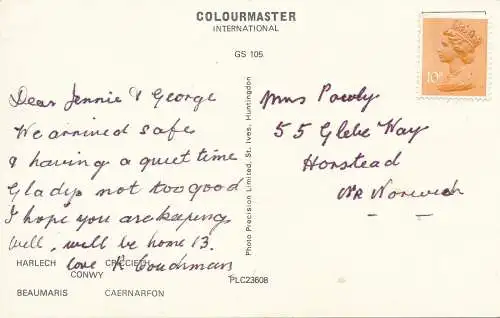 COLOURMASTER
INTERNATIONAL
GS 105
10P
Dear Jennie & George
We arrived safe
& having a quiet time
Gladys not too good
I hope you are keeping
well, will be home 13.
love R Coudmans
HARLECH CRICCIETH
CONWY
BEAUMARIS CAERNARFON
Photo Precision Limited, St. Ives, Huntingdon
PLC23608
Mrs
55 Glebe Way
Horstead
NR Norwich